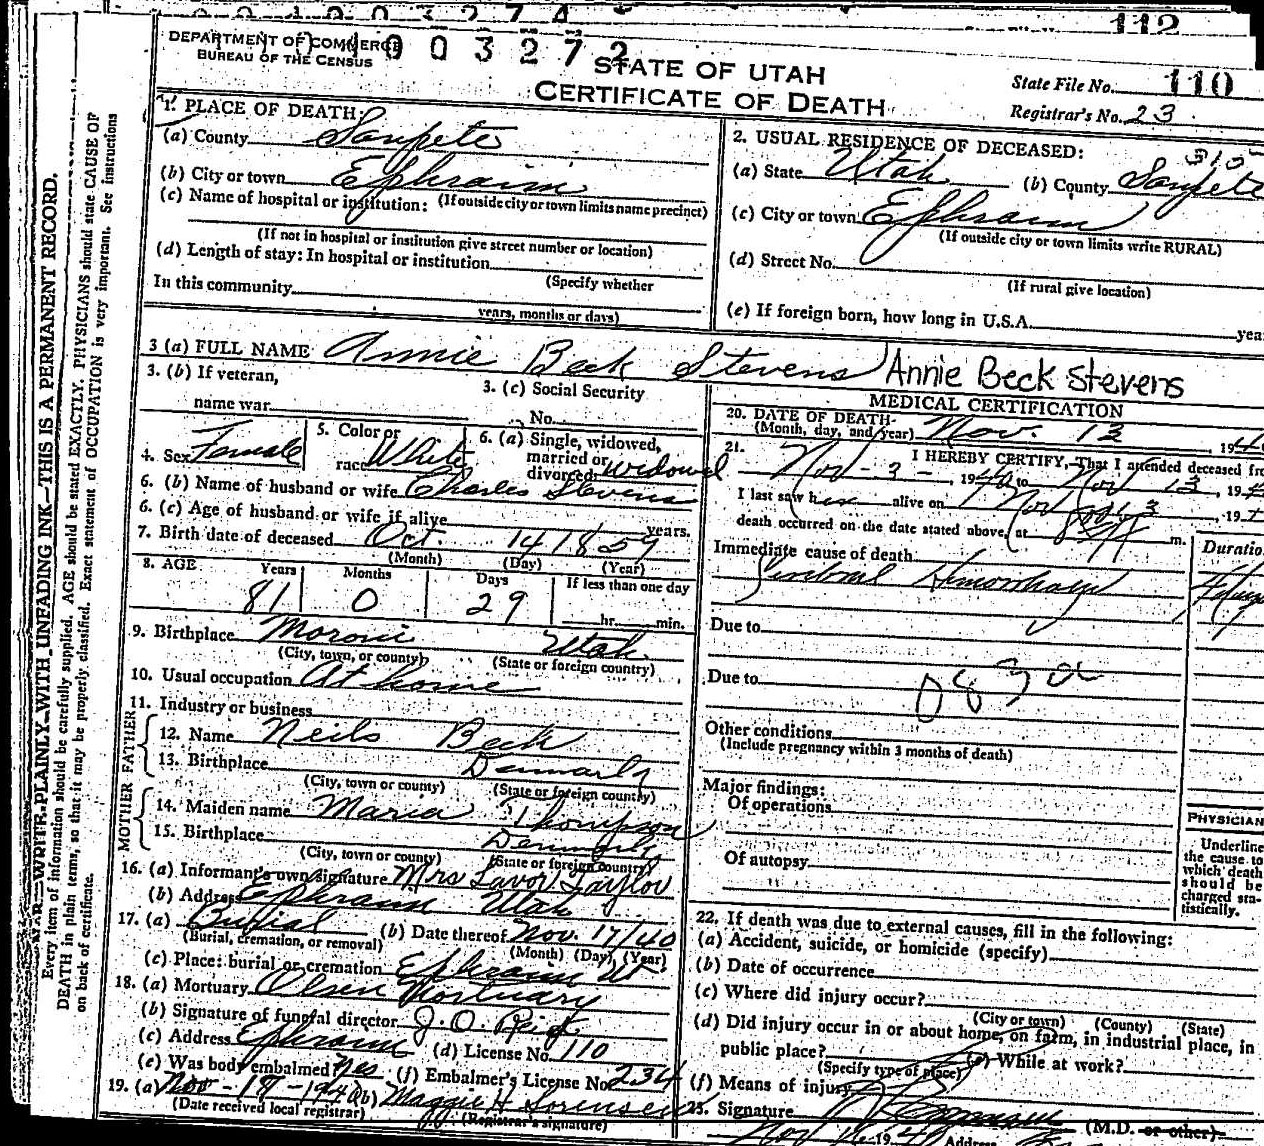 112
DEPARTMENT OF COMMERCE
BUREAU OF THE CENSUS
STATE OF UTAH
CERTIFICATE OF DEATH
State File No. 110
Registrar's No. 23
1. PLACE OF DEATH:
(a) County Sanpete
(b) City or town Ephraim
(If outside city or town limits name precinct)
(c) Name of hospital or institution:
(If not in hospital or institution give street number or location)
(d) Length of stay: In hospital or institution
(Specify whether
In this community
years, months or days)
2. USUAL RESIDENCE OF DECEASED:
(a) State Utah (b) County Sanpete
(c) City or town Ephraim
(If outside city or town limits write RURAL)
(d) Street No.
(If rural give location)
(e) If foreign born, how long in U.S.A. yea
3 (a) FULL NAME Annie Beck Stevens Annie Beck Stevens
3. (b) If veteran,
name war
3. (c) Social Security
No.
4. Sex Female
5. Color or
race White
6. (a) Single, widowed,
married or
divorced widowed
6. (b) Name of husband or wife Charles Stevens
6. (c) Age of husband or wife if alive years.
7. Birth date of deceased Oct. 14 1859
(Month) (Day) (Year)
8. AGE Years Months Days If less than one day
81 0 29 hr. min.
9. Birthplace Moroni Utah
(City, town, or county) (State or foreign country)
10. Usual occupation At home
11. Industry or business
FATHER
12. Name Neils Beck
13. Birthplace Denmark
(City, town or county) (State or foreign country)
MOTHER
14. Maiden name Maria Thompson
15. Birthplace Denmark
(City, town or county) (State or foreign country)
16. (a) Informant's own signature Mrs Lavor Taylor
(b) Address Ephraim Utah
17. (a) Burial (b) Date thereof Nov. 17/40
(Burial, cremation, or removal) (Month) (Day) (Year)
(c) Place: burial or cremation Ephraim Ut
18. (a) Mortuary Olsen Mortuary
(b) Signature of funeral director
(c) Address Ephraim (d) License No. 110
(e) Was body embalmed? yes (f) Embalmer's License No. 234
19. (a) (b) Maggie H Sorensen
(Date received local registrar) (Registrar's signature)
MEDICAL CERTIFICATION
20. DATE OF DEATH-
(Month, day, and year) Nov. 13 , 1940
21. I HEREBY CERTIFY, That I attended deceased fro
Nov - 3 - , 1940 to Nov 13 , 19
I last saw h alive on Nov , 19
death occurred on the date stated above, at m.
Immediate cause of death Duratio
Cerebral Hemorrhage
Due to
Due to
083a
Other conditions
(Include pregnancy within 3 months of death)
Major findings:
Of operations
Of autopsy
PHYSICIAN
Underline
the cause to
which death
should be
charged sta-
tistically.
22. If death was due to external causes, fill in the following:
(a) Accident, suicide, or homicide (specify)
(b) Date of occurrence
(c) Where did injury occur?
(City or town) (County) (State)
(d) Did injury occur in or about home, on farm, in industrial place, in
public place?
(Specify type of place) (e) While at work?
(f) Means of injury
23. Signature (M.D. or other).
Address
WRITE PLAINLY—WITH UNFADING INK—THIS IS A PERMANENT RECORD.
Every item of information should be carefully supplied. AGE should be stated EXACTLY. PHYSICIANS should state CAUSE OF
DEATH in plain terms, so that it may be properly classified. Exact statement of OCCUPATION is very important. See instructions
on back of certificate.